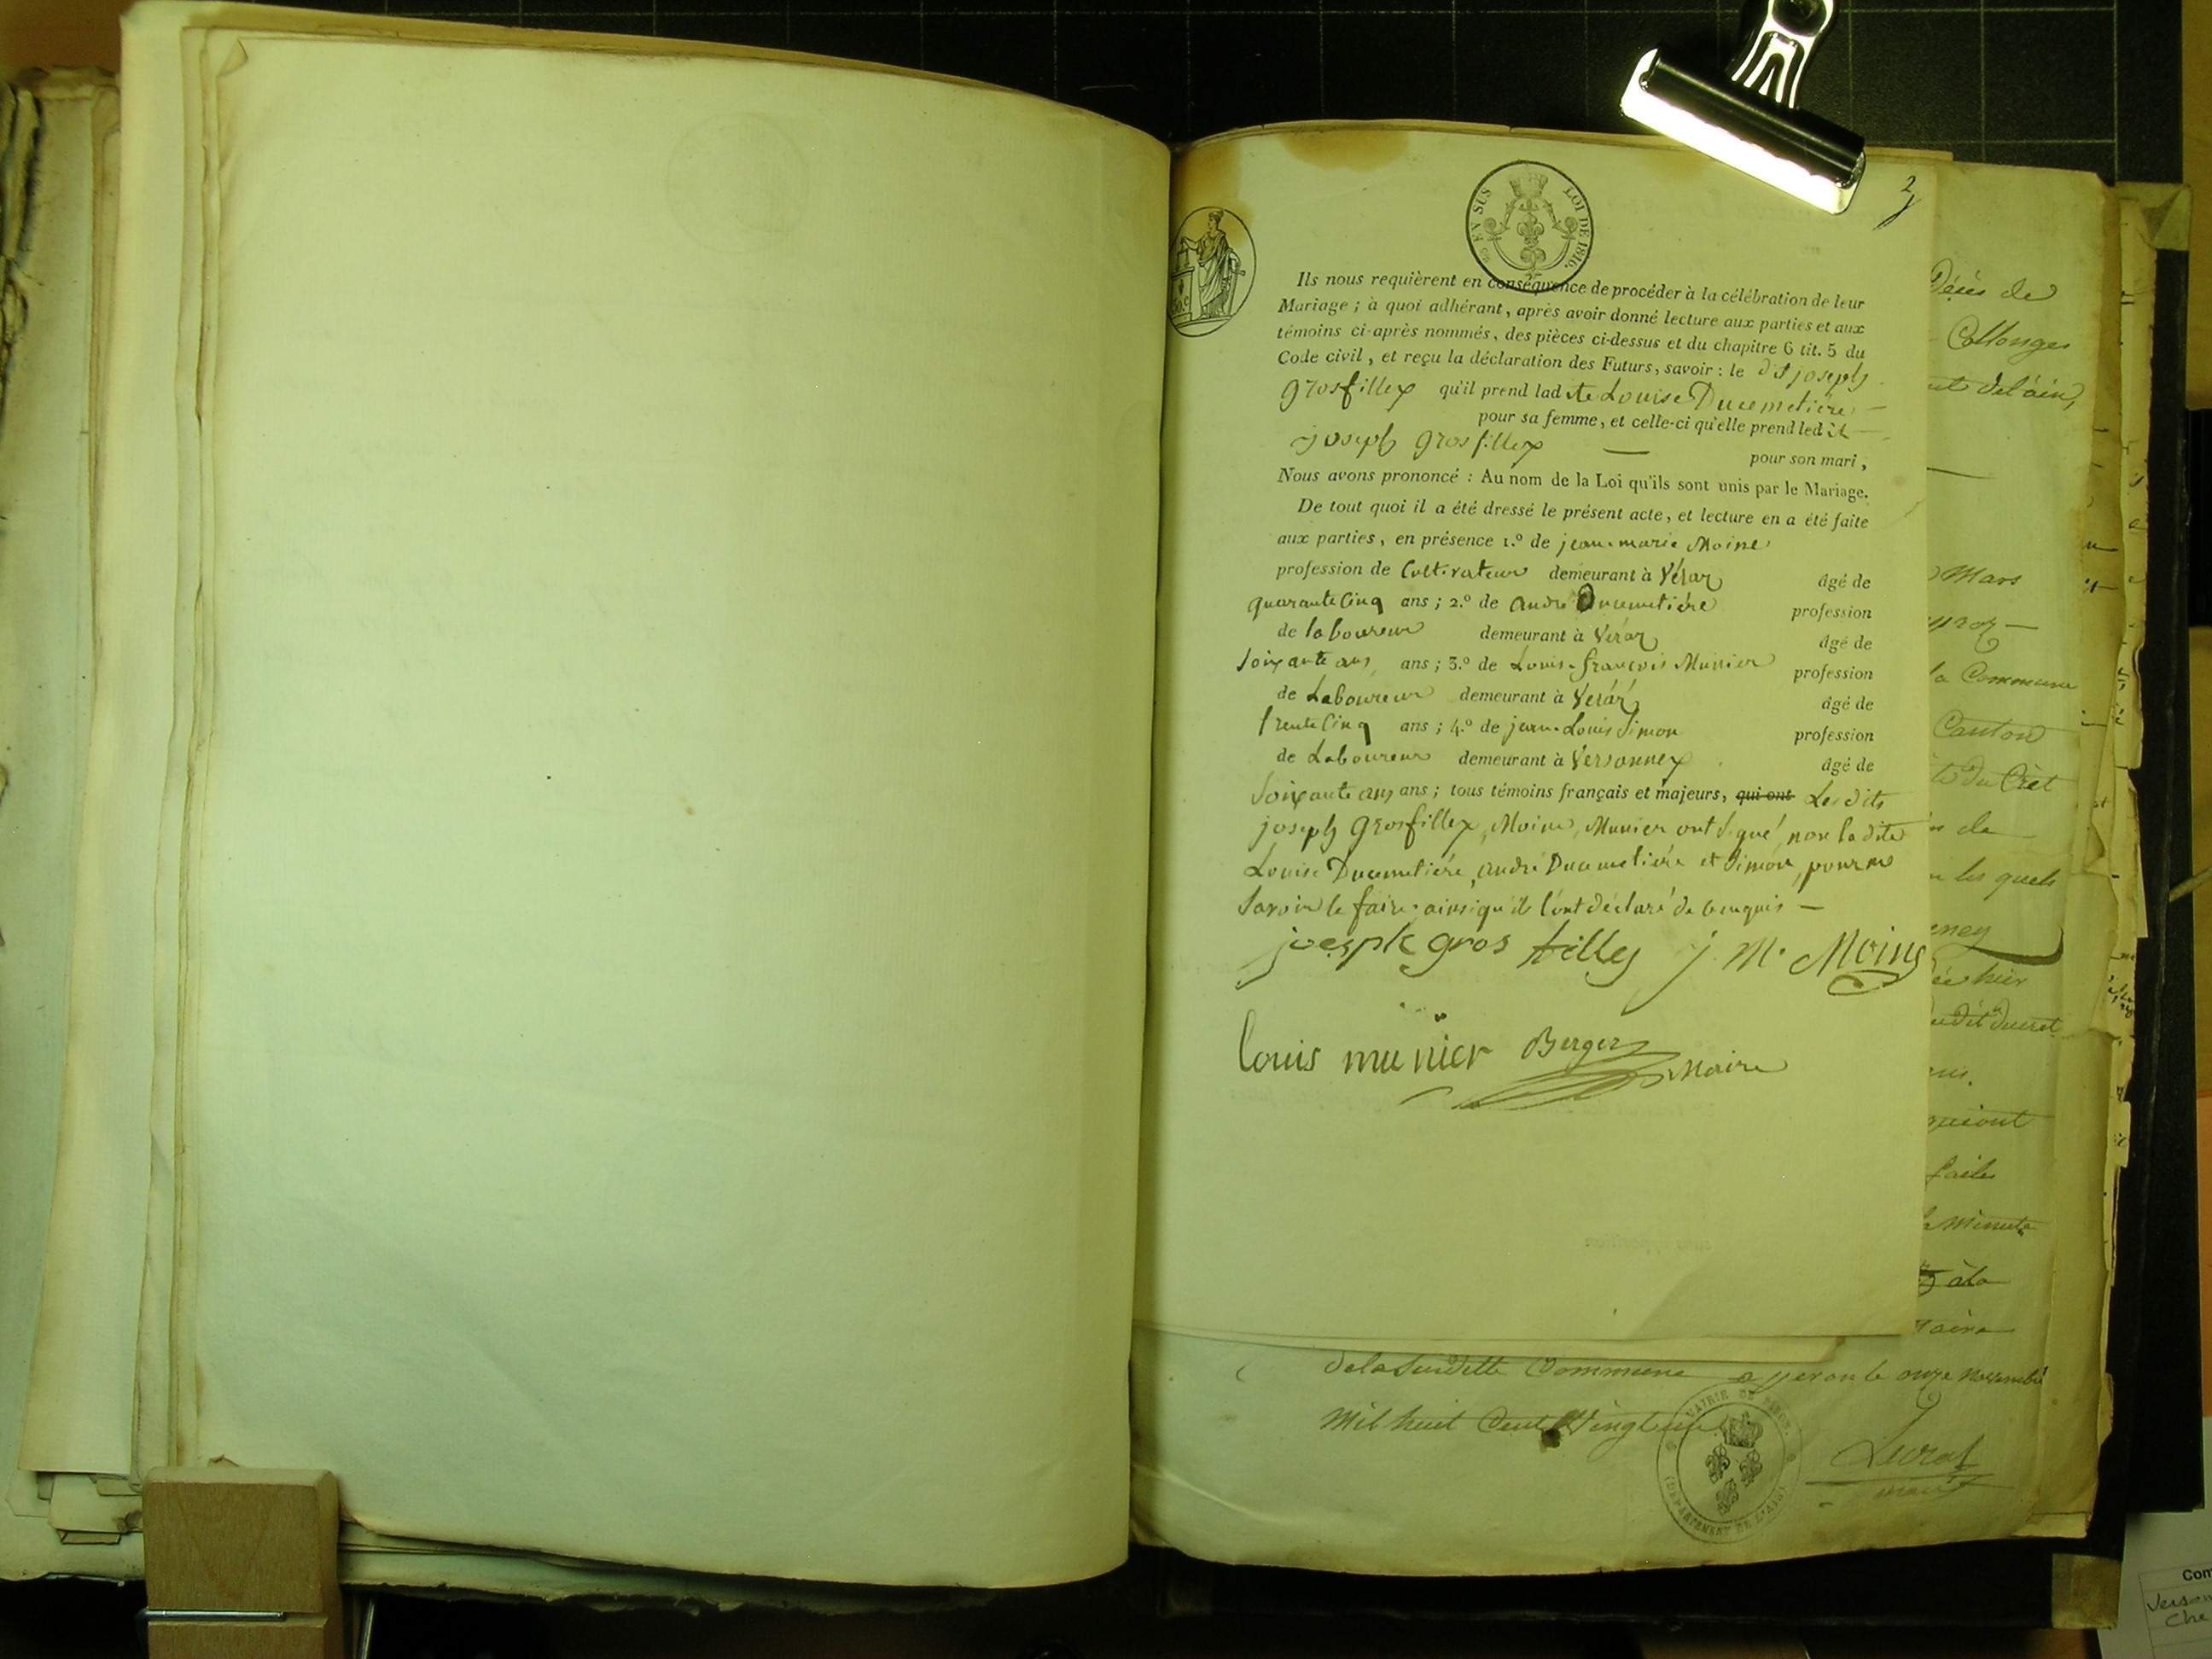 2
EN SUS LOI DE 1816.
25
Ils nous requièrent en conséquence de procéder à la célébration de leur
Mariage ; à quoi adhérant, après avoir donné lecture aux parties et aux
témoins ci-après nommés, des pièces ci-dessus et du chapitre 6 tit. 5 du
Code civil, et reçu la déclaration des Futurs, savoir : le dit joseph
grosfillex qu'il prend lad ite Louise Ducemetiére
pour sa femme, et celle-ci qu'elle prend led it
joseph grosfillex pour son mari,
Nous avons prononcé : Au nom de la Loi qu'ils sont unis par le Mariage.
De tout quoi il a été dressé le présent acte, et lecture en a été faite
aux parties, en présence 1.º de jean-marie Moine
profession de Cultivateur demeurant à Véraz âgé de
quarante Cinq ans ; 2.º de andré Ducemetiére profession
de laboureur demeurant à Véraz âgé de
Soixante ans ans ; 3.º de Louis-françois Munier profession
de Laboureur demeurant à Véraz âgé de
trente Cinq ans ; 4.º de jean-Louis Simon profession
de Laboureur demeurant à Versonnex âgé de
Soixante ans ans ; tous témoins français et majeurs, qui ont Les dits
joseph Grosfillex, Moine, Munier ont signé, non la dite
Louise Ducemetiére, andré Ducemetiére et Simon, pour ne
Savoir le faire, ainsi qu'ils l'ont déclaré de ce requis —
joespk gros filley j. M. Moine
louis munier Berger
Maire
Décès de
Collonges
de l'ain,
Mars
la Commune
Canton
du Crêt
de
les quels
hier
ducret
faites
Minute
à la
de la Susditte Commune a peron le onze novembre
Mil huit Cent Vingt un
MAIRIE DE PERON.
(DÉPARTEMENT DE L'AIN)
Levrat
maire
Com
Verson
Che